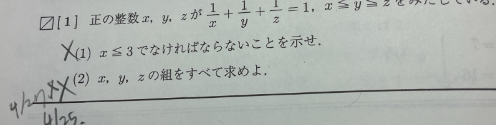 [1] 正の整数 x, y, z が 1/x + 1/y + 1/z = 1, x ≦ y ≦ z をみたしている.
(1) x ≦ 3 でなければならないことを示せ.
(2) x, y, z の組をすべて求めよ.
4/25.